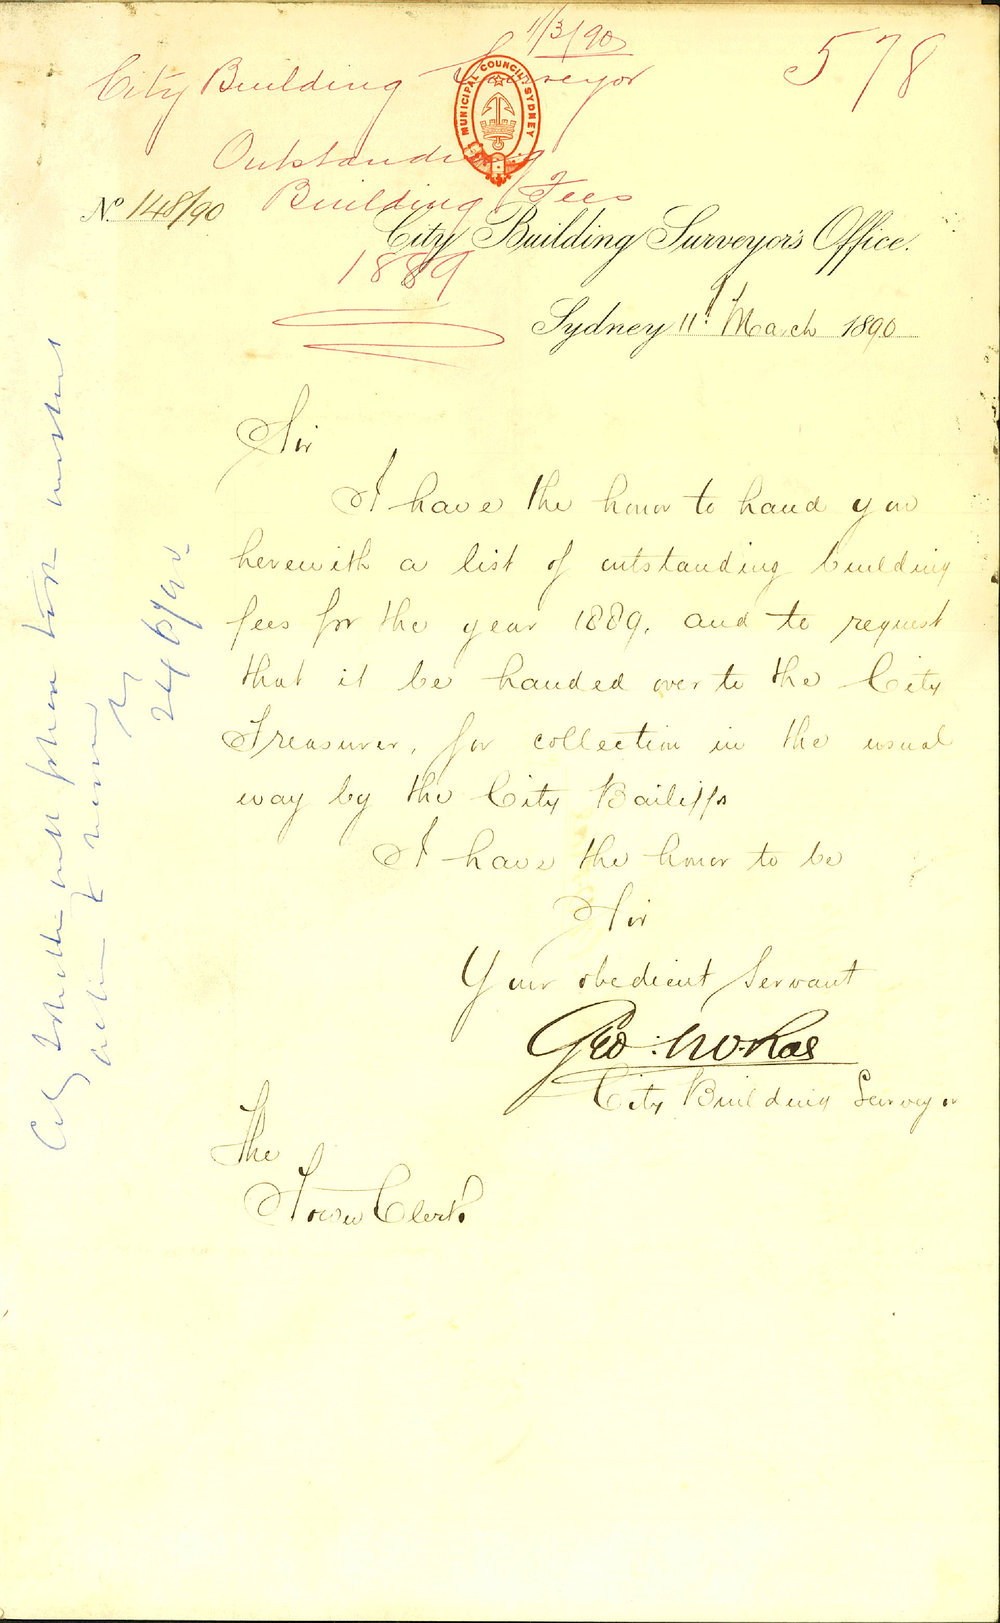 11/3/90
578
City Building Surveyor
MUNICIPAL COUNCIL SYDNEY
Outstanding
Building Fees
1889
No. 148/90
City Building Surveyor's Office.
Sydney 11th March 1890
Sir
I have the honor to hand you
herewith a list of outstanding building
fees for the year 1889, and to request
that it be handed over to the City
Treasurer, for collection in the usual
way by the City Bailiffs
I have the honor to be
Sir
Your obedient Servant
Geo:
City Building Surveyor
The
Town Clerk
City
action
24/6/90